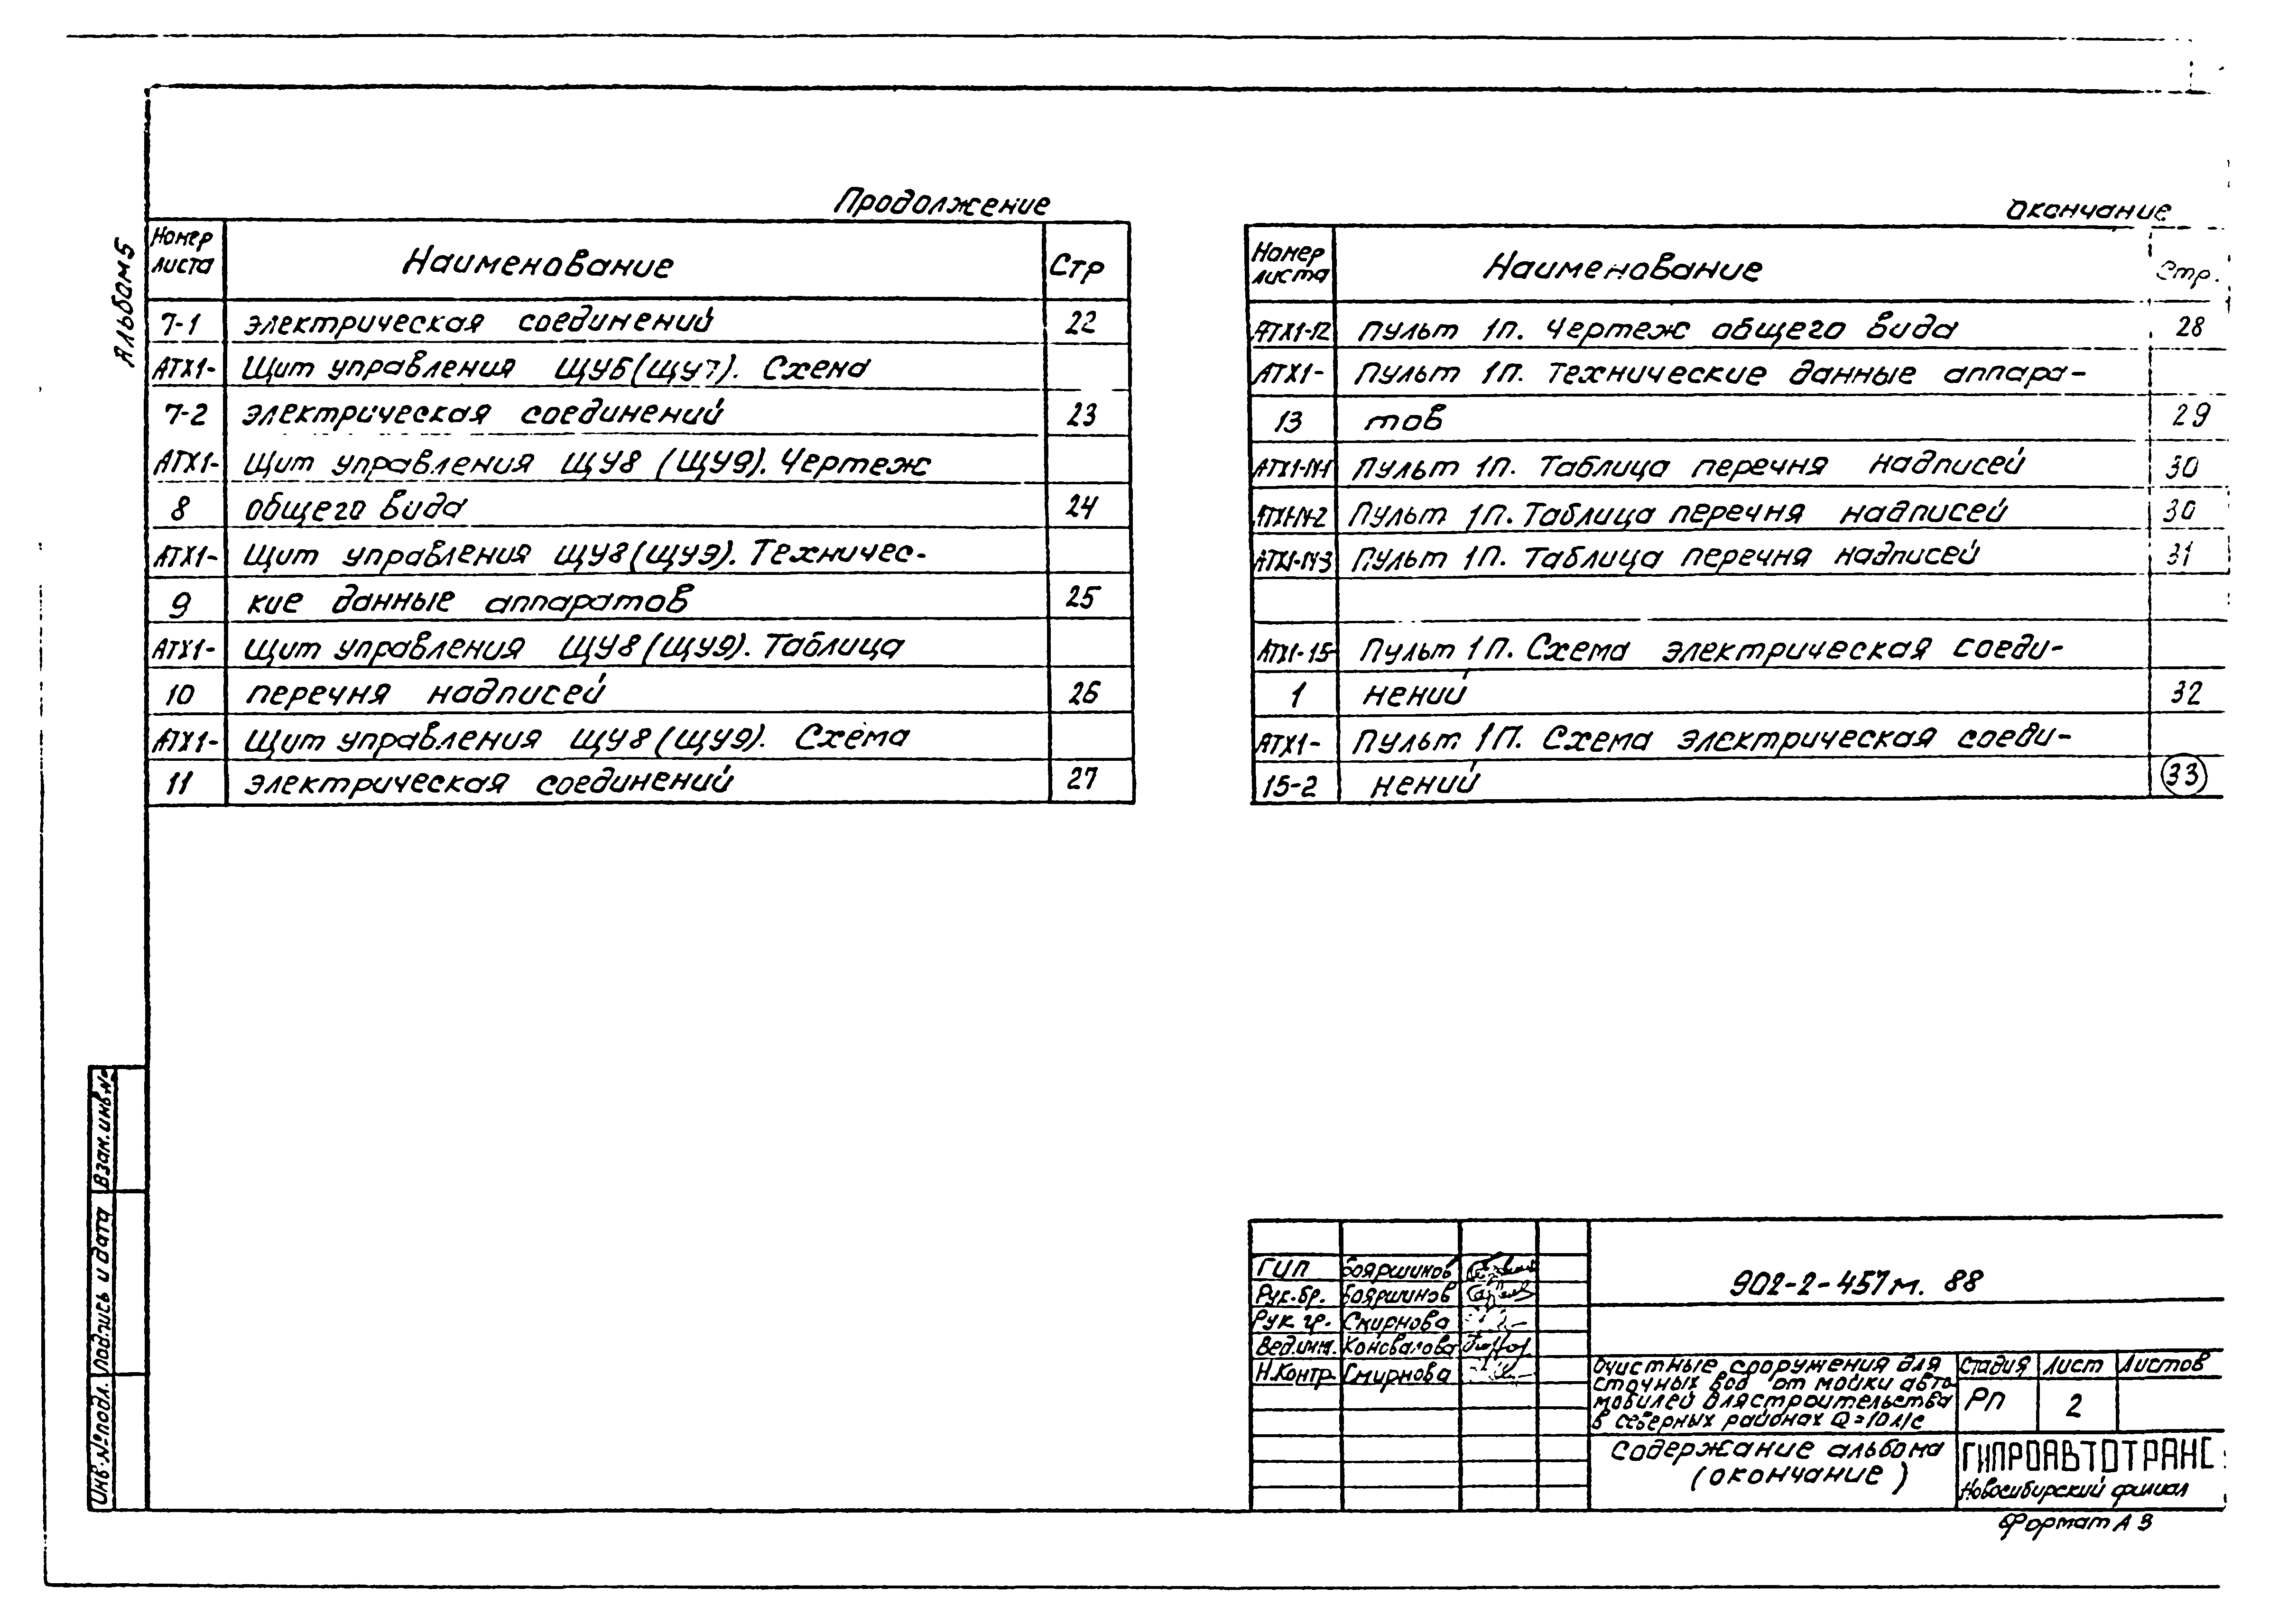 Альбом 5
Продолжение
Номер листа Наименование Стр
7-1 электрическая соединений 22
АТХ1- Щит управления ЩУ6(ЩУ7). Схема
7-2 электрическая соединений 23
АТХ1- Щит управления ЩУ8 (ЩУ9). Чертеж
8 общего вида 24
АТХ1- Щит управления ЩУ8(ЩУ9). Техничес-
9 кие данные аппаратов 25
АТХ1- Щит управления ЩУ8(ЩУ9). Таблица
10 перечня надписей 26
АТХ1- Щит управления ЩУ8(ЩУ9). Схема
11 электрическая соединений 27
Окончание
Номер листа Наименование Стр.
АТХ1-12 Пульт 1П. Чертеж общего вида 28
АТХ1- Пульт 1П. Технические данные аппара-
13 тов 29
АТХ1-14-1 Пульт 1П. Таблица перечня надписей 30
АТХ1-14-2 Пульт 1П. Таблица перечня надписей 30
АТХ1-14-3 Пульт 1П. Таблица перечня надписей 31
АТХ1-15- Пульт 1П. Схема электрическая соеди-
1 нений 32
АТХ1- Пульт 1П. Схема электрическая соеди-
15-2 нений 33
Инв.№подл. Подпись и дата Взам.инв.№
ГИП Бояршинов
Рук.бр. Бояршинов
Рук гр. Смирнова
Вед.инж. Коновалова
Н.Контр. Смирнова
902-2-457м. 88
Очистные сооружения для
сточных вод от мойки авто-
мобилей для строительства
в северных районах Q=10 л/с
Стадия Лист Листов
РП 2
Содержание альбома
(окончание)
ГИПРОАВТОТРАНС
Новосибирский филиал
Формат А3